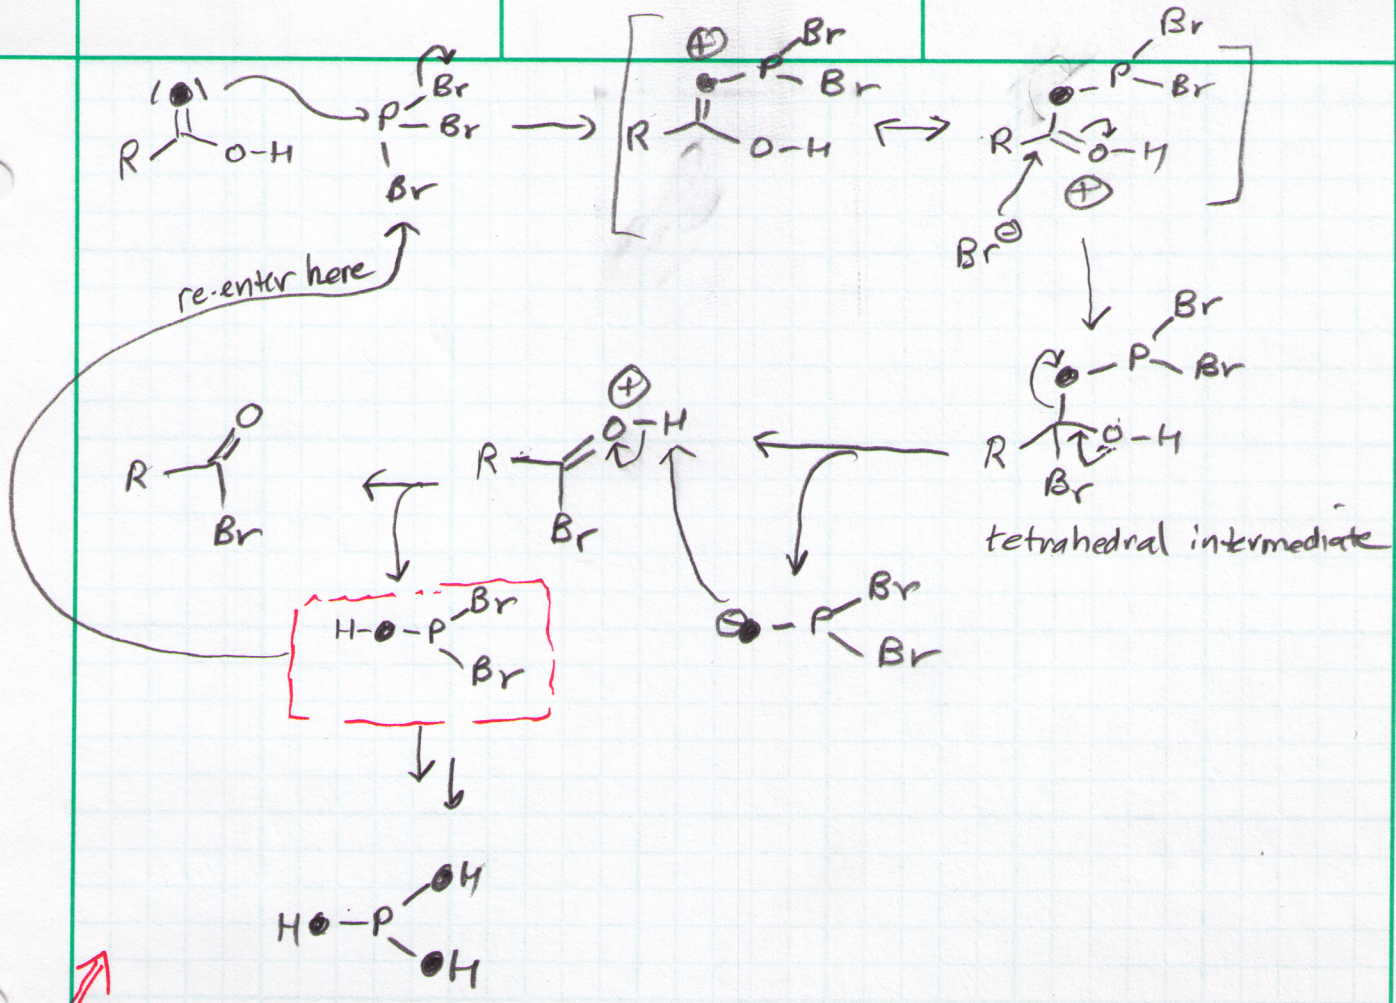 R
O-H
P
Br
Br
Br
R
P
Br
Br
O-H
R
P
Br
Br
O-H
Br
re-enter here
P
Br
Br
R
O-H
Br
tetrahedral intermediate
R
O-H
Br
P
Br
Br
R
O
Br
H
P
Br
Br
H
P
H
H